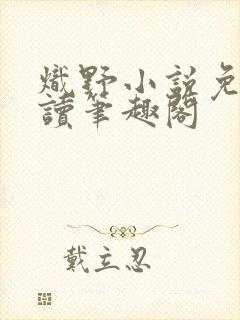 熾野小説免
讀筆趣閣
戴立忍